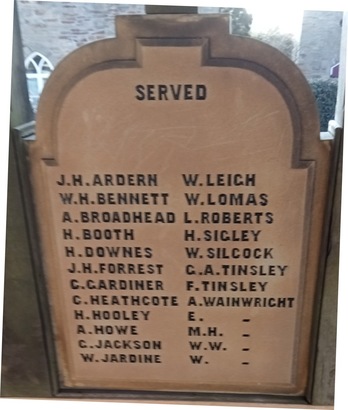 SERVED
J.H.ARDERN W.LEIGH
W.H.BENNETT W.LOMAS
A.BROADHEAD L.ROBERTS
H.BOOTH H.SIGLEY
H.DOWNES W.SILCOCK
J.H.FORREST G.A.TINSLEY
G.GARDINER F.TINSLEY
C.HEATHCOTE A.WAINWRIGHT
H.HOOLEY E. -
A.HOWE M.H. -
C.JACKSON W.W. -
W.JARDINE W. -